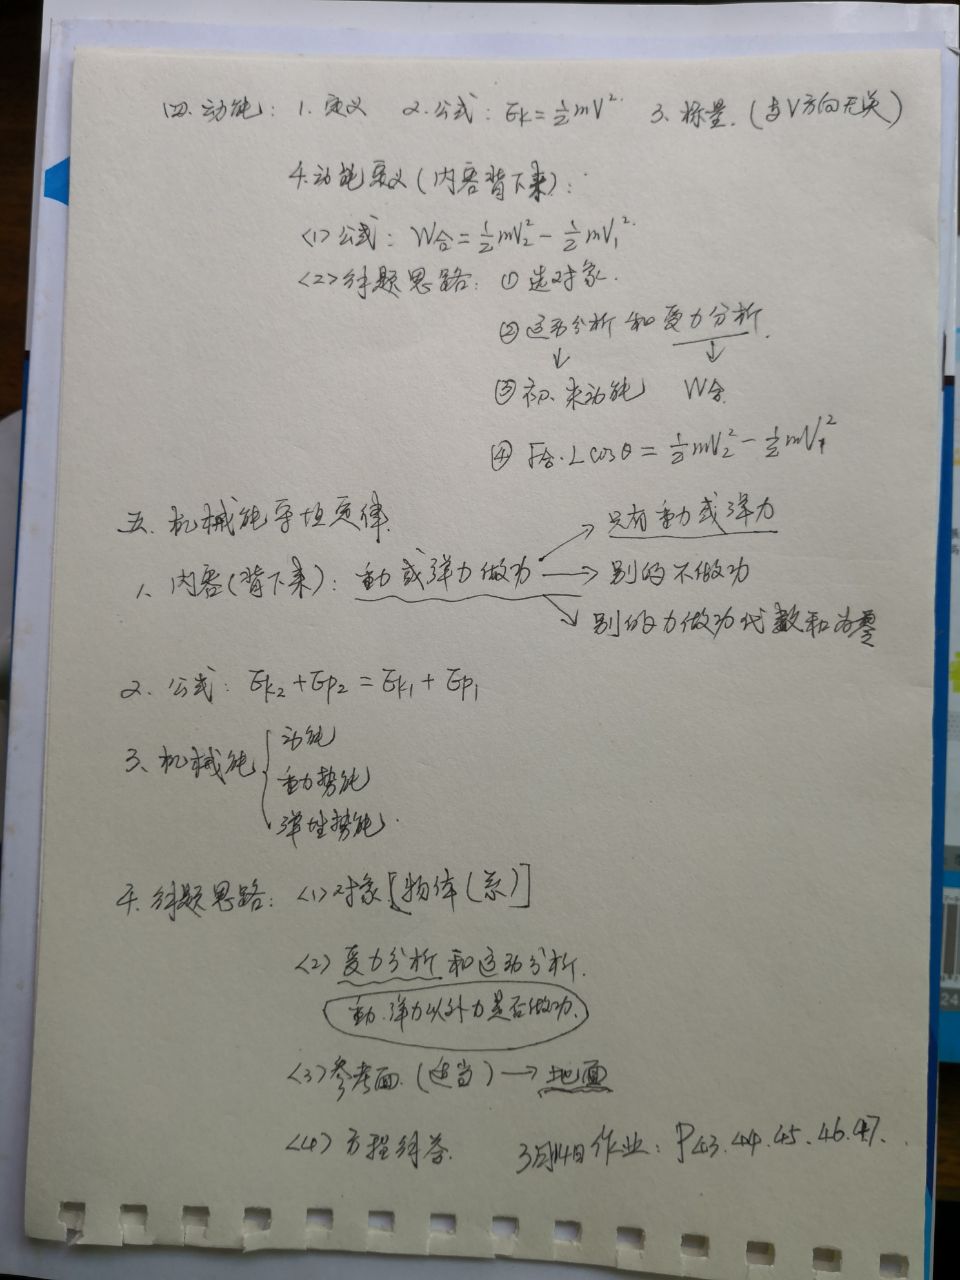 四、动能：1、定义 2、公式：Ek=½mV² 3、标量.（与V方向无关）
4、动能定义(内容背下来)：
<1>公式：W合=½mV₂²-½mV₁²
<2>解题思路：①选对象.
②运动分析和受力分析.
↓ ↓
③初、末动能 W合
④F合·Lcosθ=½mV₂²-½mV₁²
五、机械能守恒定律.
→只有重力或弹力
1、内容(背下来)：重力或弹力做功→别的不做功
↘别的力做功代数和为零
2、公式：Ek₂+Ep₂=Ek₁+Ep₁
3、机械能{动能
重力势能
弹性势能.
4、解题思路：<1>对象[物体(系)]
<2>受力分析和运动分析.
重力.弹力以外力是否做功.
<3>参考面.(适当)→地面
<4>方程解答. 3月14日作业：P43.44.45.46.47.
24